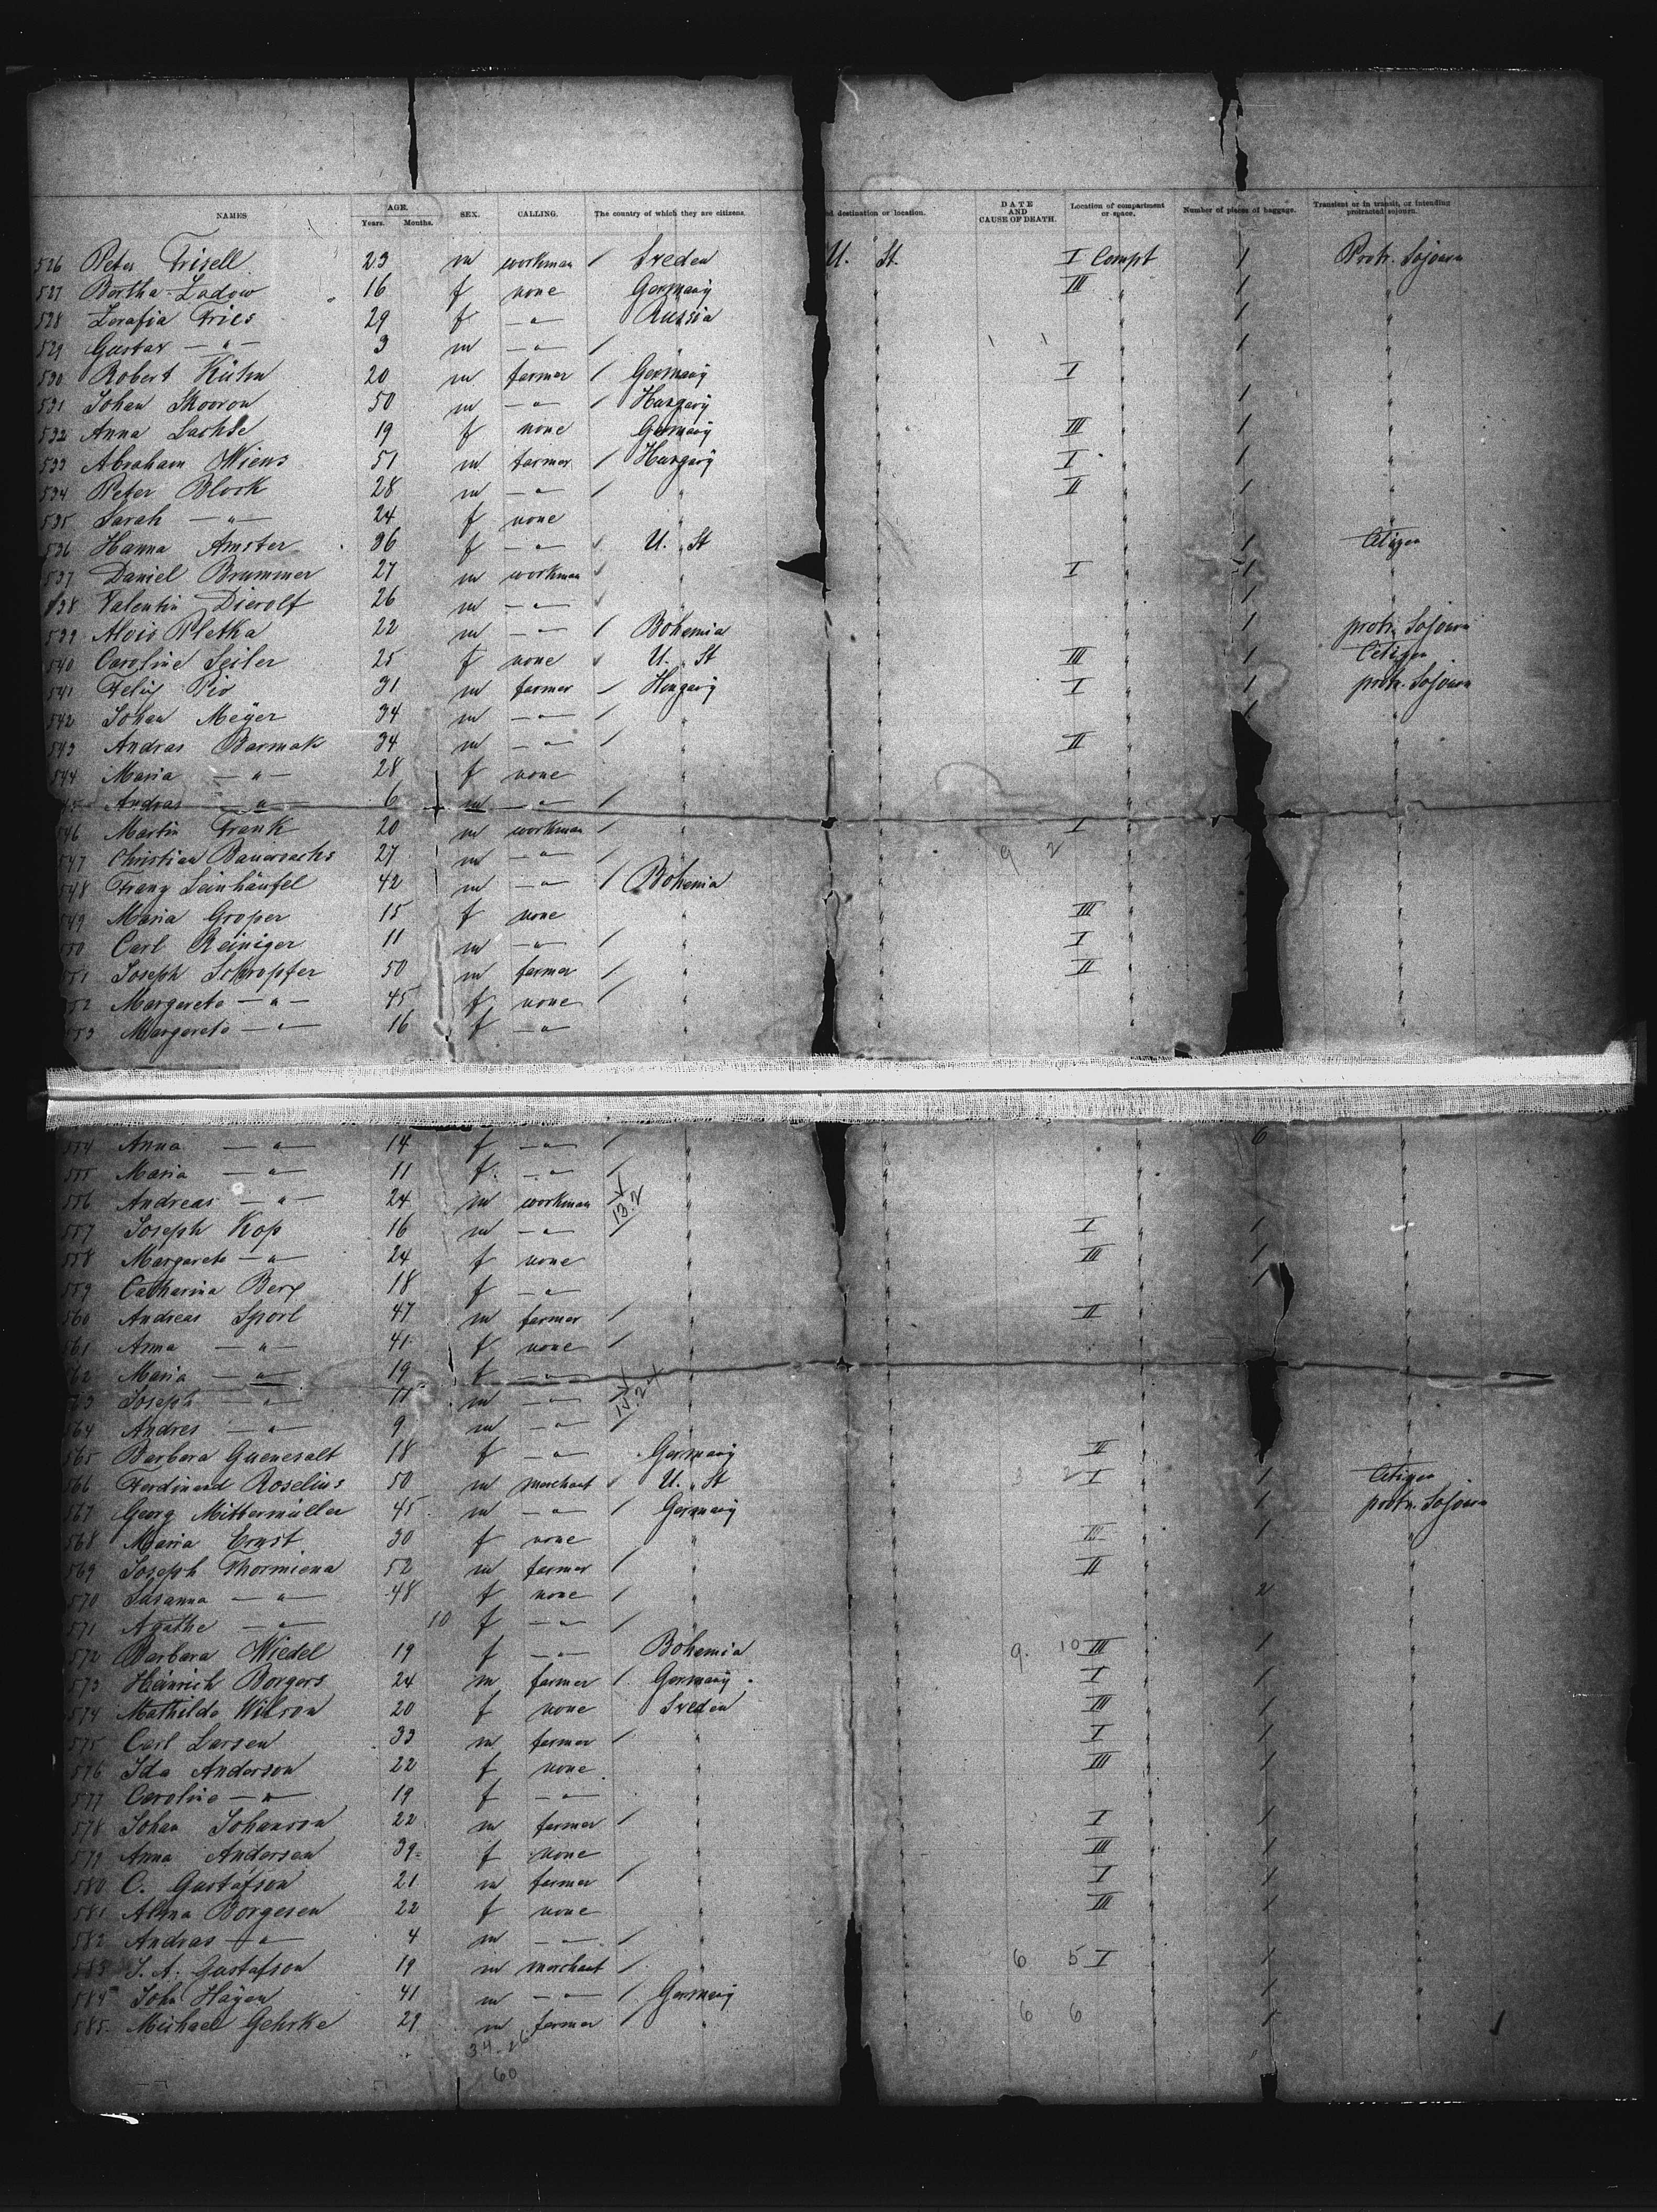 NAMES AGE. Years. Months. SEX. CALLING. The country of which they are citizens. destination or location. DATE AND CAUSE OF DEATH. Location of compartment or space. Number of pieces of baggage. Transient or in transit, or intending protracted sojourn.
526 Peter Frisell 23 m workman / Sweden U. St. I Compt 1 Protr. Sojourn
527 Bertha Ladow 16 f none Germany " III " 1 "
528 Fries 29 f —"— Russia " " 1 "
529 Gustav —"— 3 m —"— / " " 1 "
530 Robert Kühn 20 m farmer / Germany " I " "
531 Johan Skooron 50 m —"— / Hungary " " 1 "
532 Anna Sachse 19 f none Germany " III " 1 "
533 Abraham Wiens 51 m farmer / Hungary " I " 1 "
534 Peter Block 28 m —"— / " " II " 1 "
535 Sarah —"— 24 f none " " " "
536 Hanna Amster 36 f —"— ✓ U. St " " 1 Citizen
537 Daniel Brummer 27 m workman ✓ " " I " 1 "
538 Valentin Dierolf 26 m —"— ✓ " " " 1 "
539 Alois Pletka 22 m —"— / Bohemia " " 1 protr. Sojourn
540 Caroline Seiler 25 f none ✓ U. St " III " 1 Citizen
541 Felix Pir 31 m farmer / Hungary " I " 1 protr. Sojourn
542 Johan Meÿer 34 m —"— / " " " 1 "
543 Andras Barmak 34 m —"— / " " II " "
544 Maria —"— 28 f none " " " "
545 Andras —"— 6 m —"— / " " " "
546 Martin Frank 20 m workman / " " I " "
547 Christian Bauersachs 27 m —"— / " " 9 2 " "
548 Franz Leinhäufel 42 m —"— / Bohemia " " "
549 Maria Groper 15 f none " " III " "
550 Carl Reiniger 11 m —"— / " " I " "
551 Joseph Schropfer 50 m farmer / " " II " "
552 Margareta —"— 45 f none / " " " "
553 Margareta —"— 16 f —"— " " " "
554 Anna —"— 14 f —"— / " " " 6 "
555 Maria —"— 11 f —"— / " " " "
556 Andreas —"— 24 m workman / " " " "
557 Joseph Kop 16 m —"— / " " I " 1 "
558 Margareta —"— 24 f none " " III " 1 "
559 Catharina Berg 18 f —"— " " " 1 "
560 Andreas Sporl 47 m farmer / " " II " "
561 Anna —"— 41 f none / " " " "
562 Maria —"— 19 f —"— " " " "
563 Joseph —"— 11 m —"— / " " " "
564 Andres —"— 9 m —"— / " " " "
565 Barbara Guenesalt 18 f —"— Germany " II " "
566 Ferdinand Roselius 50 m merchant ✓ U. St " 3 2 I " 1 Citizen
567 Georg Mittermüller 45 m —"— / Germany " " 1 protr. Sojourn
568 Maria Ernst 30 f none " " III " 1 "
569 Joseph Thormiena 52 m farmer / " " II " "
570 Susanna —"— 48 f none / " " " 2 "
571 Agathe —"— 10 f —"— / " " " "
572 Barbara Wiedel 19 f —"— Bohemia " 9 10 III " 1 "
573 Heinrich Borgers 24 m farmer / Germany " I " 1 "
574 Mathilde Wilson 20 f none Sweden " III " 1 "
575 Carl Larsen 33 m farmer / " " I " 1 "
576 Ida Anderson 22 f none " " III " 1 "
577 Caroline —"— 19 f —"— " " " "
578 Johan Johanson 22 m farmer / " " I " 1 "
579 Anna Andersen 39 f none " " III " 1 "
580 C. Gustafson 21 m farmer / " " I " 1 "
581 Alma Borgesen 22 f none " " III " 1 "
582 Andras —"— 4 m —"— / " " " "
583 J. A. Gustafson 19 m merchant / " " 6 5 I " 1 "
584 John Hagen 41 m —"— / Germany " " 1 "
585. Michael Gehrke 29 m farmer / " " 6 6 " 1
34. 26
60